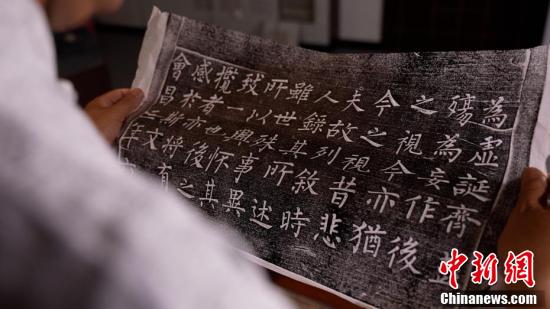 為虛誕齊
殤為妄作後
之視今亦猶
今之視昔悲
夫故列敘時
人錄其所述
雖世殊事異
所以興懷其
致一也後之
攬者亦將有
感於斯文
會昌年
中新网
Chinanews.com